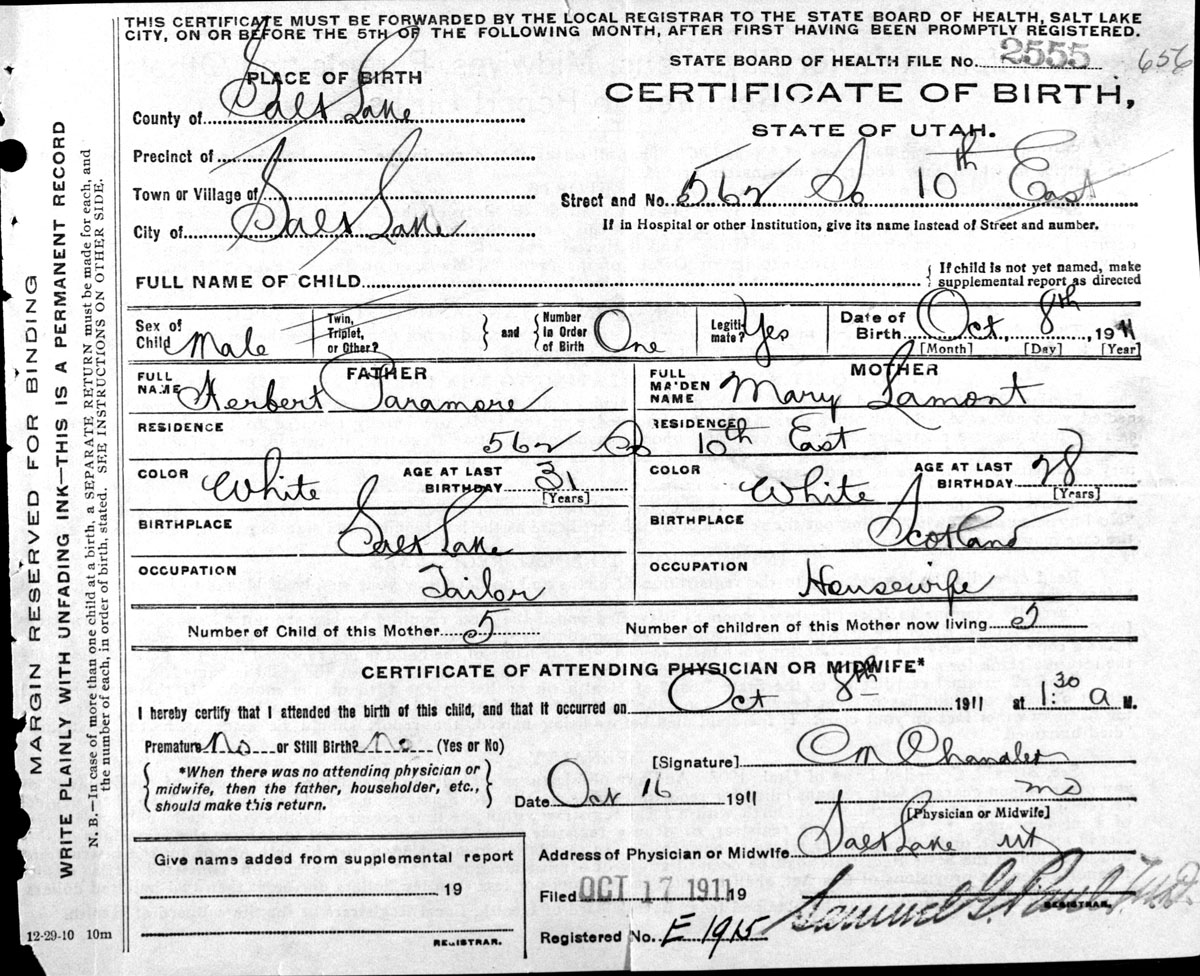 THIS CERTIFICATE MUST BE FORWARDED BY THE LOCAL REGISTRAR TO THE STATE BOARD OF HEALTH, SALT LAKE
CITY, ON OR BEFORE THE 5TH OF THE FOLLOWING MONTH, AFTER FIRST HAVING BEEN PROMPTLY REGISTERED.
STATE BOARD OF HEALTH FILE No. 2555 656
PLACE OF BIRTH
CERTIFICATE OF BIRTH,
STATE OF UTAH.
County of Salt Lake
Precinct of
Town or Village of
Street and No. 562 So 10th East
City of Salt Lake
If in Hospital or other Institution, give its name Instead of Street and number.
FULL NAME OF CHILD
{ If child is not yet named, make supplemental report as directed
Sex of Child Male
Twin, Triplet, or Other?
} and { Number in Order of Birth One
Legiti-mate? Yes
Date of Birth Oct 8th, 1911
[Month] [Day] [Year]
FATHER
FULL NAME Herbert Paramore
MOTHER
FULL MAIDEN NAME Mary Lamont
RESIDENCE 562 So 10th East
RESIDENCE
COLOR White
AGE AT LAST BIRTHDAY 31
[Years]
COLOR White
AGE AT LAST BIRTHDAY 28
[Years]
BIRTHPLACE Salt Lake
BIRTHPLACE Scotland
OCCUPATION Tailor
OCCUPATION Housewife
Number of Child of this Mother 5
Number of children of this Mother now living 5
CERTIFICATE OF ATTENDING PHYSICIAN OR MIDWIFE*
I hereby certify that I attended the birth of this child, and that it occurred on Oct 8th 1911 at 1:30 a M.
Premature No or Still Birth? No (Yes or No)
{ *When there was no attending physician or
midwife, then the father, householder, etc.,
should make this return. }
[Signature] CM Chandler
MD
[Physician or Midwife]
Date Oct 16 1911
Address of Physician or Midwife Salt Lake Ut
Give name added from supplemental report
19
REGISTRAR.
Filed OCT 17 1911 19
Samuel G. Paul
REGISTRAR.
Registered No. E 1915
12-29-10 10m
MARGIN RESERVED FOR BINDING
WRITE PLAINLY WITH UNFADING INK—THIS IS A PERMANENT RECORD
N. B.—In case of more than one child at a birth, a SEPARATE RETURN must be made for each, and
the number of each, in order of birth, stated. SEE INSTRUCTIONS ON OTHER SIDE.